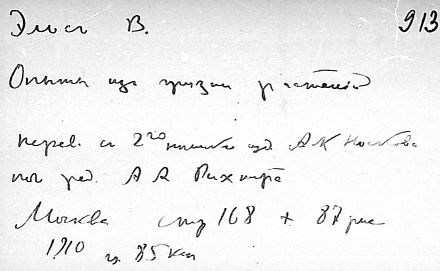 Эльсъ В. 913
Опыты надъ физіол растеній
перев. съ 2го нѣмецк изд АК Носкова
под ред. А А Рихтера
Москва стр 168 + 87 рис
1910 ц. 85 коп